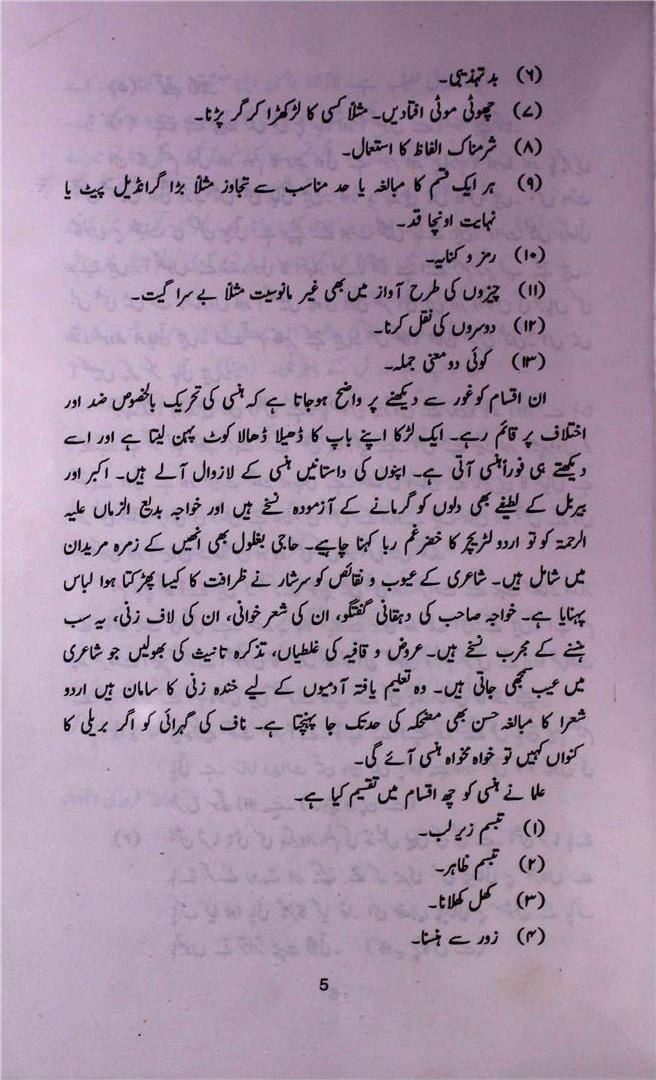 (۶) بدتہذیبی۔
(۷) چھوٹی موٹی افتادیں۔ مثلاً کسی کا لڑکھڑا کر گر پڑنا۔
(۸) شرمناک الفاظ کا استعمال۔
(۹) ہر ایک قسم کا مبالغہ یا حد مناسب سے تجاوز مثلاً بڑا گرانڈیل پیٹ یا
نہایت اونچا قد۔
(۱۰) رمز و کنایہ۔
(۱۱) چیزوں کی طرح آواز میں بھی غیر مانوسیت مثلاً بے سرا گیت۔
(۱۲) دوسروں کی نقل کرنا۔
(۱۳) کوئی دو معنی جملہ۔
ان اقسام کو غور سے دیکھنے پر واضح ہوجاتا ہے کہ ہنسی کی تحریک بالخصوص ضد اور
اختلاف پر قائم رہے۔ ایک لڑکا اپنے باپ کا ڈھیلا ڈھالا کوٹ پہن لیتا ہے اور اسے
دیکھتے ہی فوراً ہنسی آتی ہے۔ اپنوں کی داستانیں ہنسی کے لازوال آلے ہیں۔ اکبر اور
بیربل کے لطیفے بھی دلوں کو گرمانے کے آزمودہ نسخے ہیں اور خواجہ بدیع الزماں علیہ
الرحمۃ کو تو اردو لٹریچر کا خضر غم ربا کہنا چاہیے۔ حاجی بغلول بھی انھیں کے زمرہ مریدان
میں شامل ہیں۔ شاعری کے عیوب و نقائص کو سرشار نے ظرافت کا کیسا پھڑکتا ہوا لباس
پہنایا ہے۔ خواجہ صاحب کی دہقانی گفتگو، ان کی شعر خوانی، ان کی لاف زنی، یہ سب
ہنسنے کے مجرب نسخے ہیں۔ عروض و قافیہ کی غلطیاں، تذکرہ تانیث کی بھولیں جو شاعری
میں عیب سمجھی جاتی ہیں۔ وہ تعلیم یافتہ آدمیوں کے لیے خندہ زنی کا سامان ہیں اردو
شعرا کا مبالغہ حسن بھی مضحکہ کی حد تک جا پہنچتا ہے۔ ناف کی گہرائی کو اگر بریلی کا
کنواں کہیں تو خواہ مخواہ ہنسی آئے گی۔
علما نے ہنسی کو چھ اقسام میں تقسیم کیا ہے۔
(۱) تبسم زیر لب۔
(۲) تبسم ظاہر۔
(۳) کھل کھلانا۔
(۴) زور سے ہنسنا۔
5